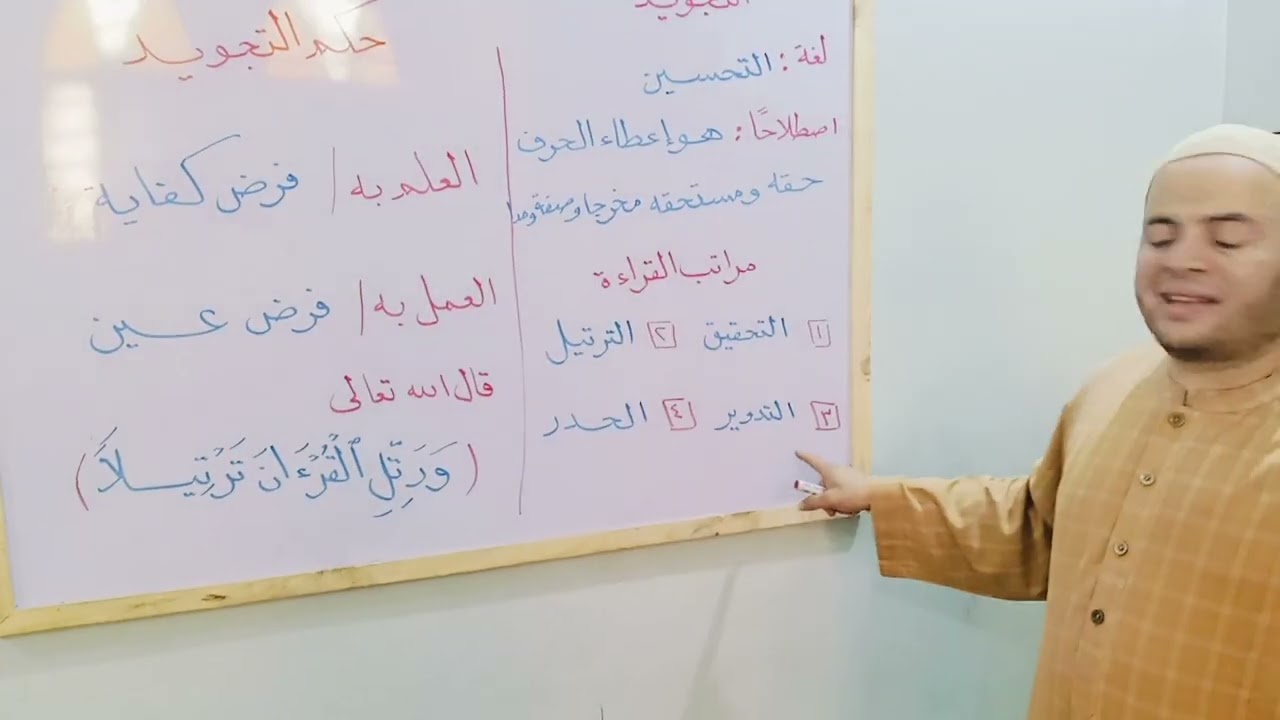 التجويد
لغة : التحسين
اصطلاحًا : هو إعطاء الحرف
حقه ومستحقه مخرجا وصفة
مراتب القراءة
١ التحقيق ٢ الترتيل
٣ التدوير ٤ الحدر
حكم التجويد
العلم به / فرض كفاية
العمل به / فرض عين
قال الله تعالى
(وَرَتِّلِ ٱلْقُرْءَانَ تَرْتِيلًا)